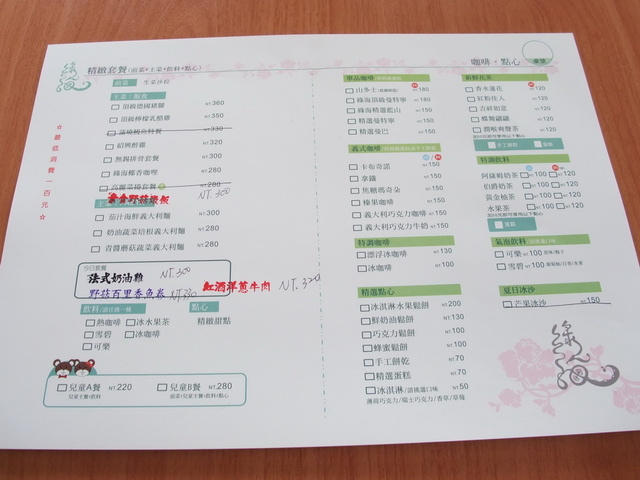 精緻套餐(前菜+主菜+飲料+點心)
前菜 生菜沙拉
主菜/飯食
頂級德國豬腳 NT.360
頂級檸檬乳酪雞 NT.350
NT.330
紹興醉雞 NT.320
無錫排骨套餐 NT.300
綠海椰香咖哩 NT.280
NT.280
NT.300
茄汁海鮮義大利麵 NT.300
奶油蔬菜培根義大利麵 NT.280
青醬蘑菇蔬菜義大利麵 NT.280
今日套餐
法式奶油雞 NT.300
野菇百里香魚卷 NT.330
紅酒洋蔥牛肉 NT.320
飲料/請任挑一種 點心
熱咖啡 冰水果茶 精緻甜點
雪碧 冰咖啡
可樂
兒童A餐 NT.220
兒童主餐+飲料
兒童B餐 NT.280
前菜/兒童主餐/飲料/點心
☆最低消費一百元☆
咖啡・點心
單品咖啡
山多士 NT.180
綠海頂級曼特寧 NT.150
綠海精選藍山 NT.150
精選曼特寧 NT.150
精選曼巴 NT.150
義式咖啡
卡布奇諾 NT.150
拿鐵 NT.150
焦糖瑪奇朵 NT.150
榛果咖啡 NT.150
義大利巧克力咖啡 NT.150
義大利巧克力牛奶 NT.150
特調咖啡
漂浮冰咖啡 NT.130
冰咖啡 NT.100
精選點心
冰淇淋水果鬆餅 NT.200
鮮奶油鬆餅 NT.130
巧克力鬆餅 NT.100
蜂蜜鬆餅 NT.100
手工餅乾 NT.70
精選蛋糕 NT.70
冰淇淋/請挑選口味 NT.50
薄荷巧克力/瑞士巧克力/香草/草莓
新鮮花茶
香水蓮花 NT.120
紅粉佳人 NT.120
吉祥如意 NT.120
蝶舞翩翩 NT.120
潤喉爽聲茶 NT.120
特調飲料
阿薩姆奶茶 NT.100 NT.100
伯爵奶茶 NT.100 NT.100
黃金柚茶 NT.100 NT.100
水果茶 NT.100 NT.100
氣泡飲料
可樂 NT.100
雪碧 NT.100
夏日冰沙
芒果冰沙 NT.150